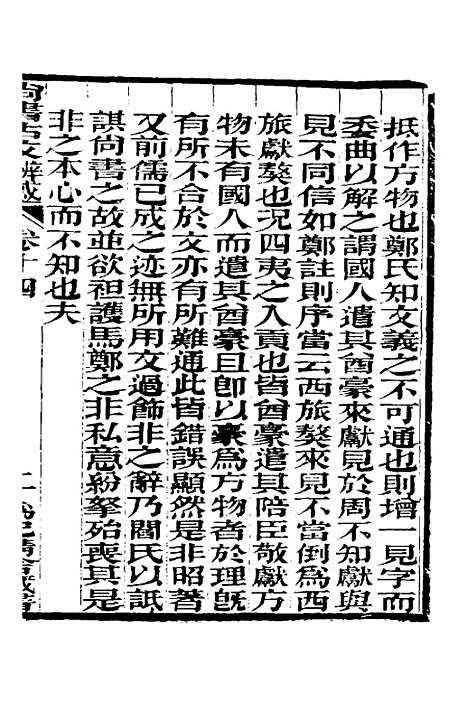 抵作方物也鄭氏知文義之不可通也則增一見字而
委曲以解之謂國人遣其酋豪來獻見於周不知獻與
見不同信如鄭註則序當云西旅獒來見不當倒為西
旅獻獒也況四夷之入貢也皆酋豪遣其陪臣敬獻方
物未有國人而遣其酋豪且卽以豪為方物者於理旣
有所不合於文亦有所難通此皆錯誤顯然是非昭著
又前儒已成之迹無所用文過飾非之辭乃閻氏以詆
諆尚書之故並欲袒護馬鄭之非私意紛拏殆喪其是
非之本心而不知也夫
尚書古文辨惑 卷十四